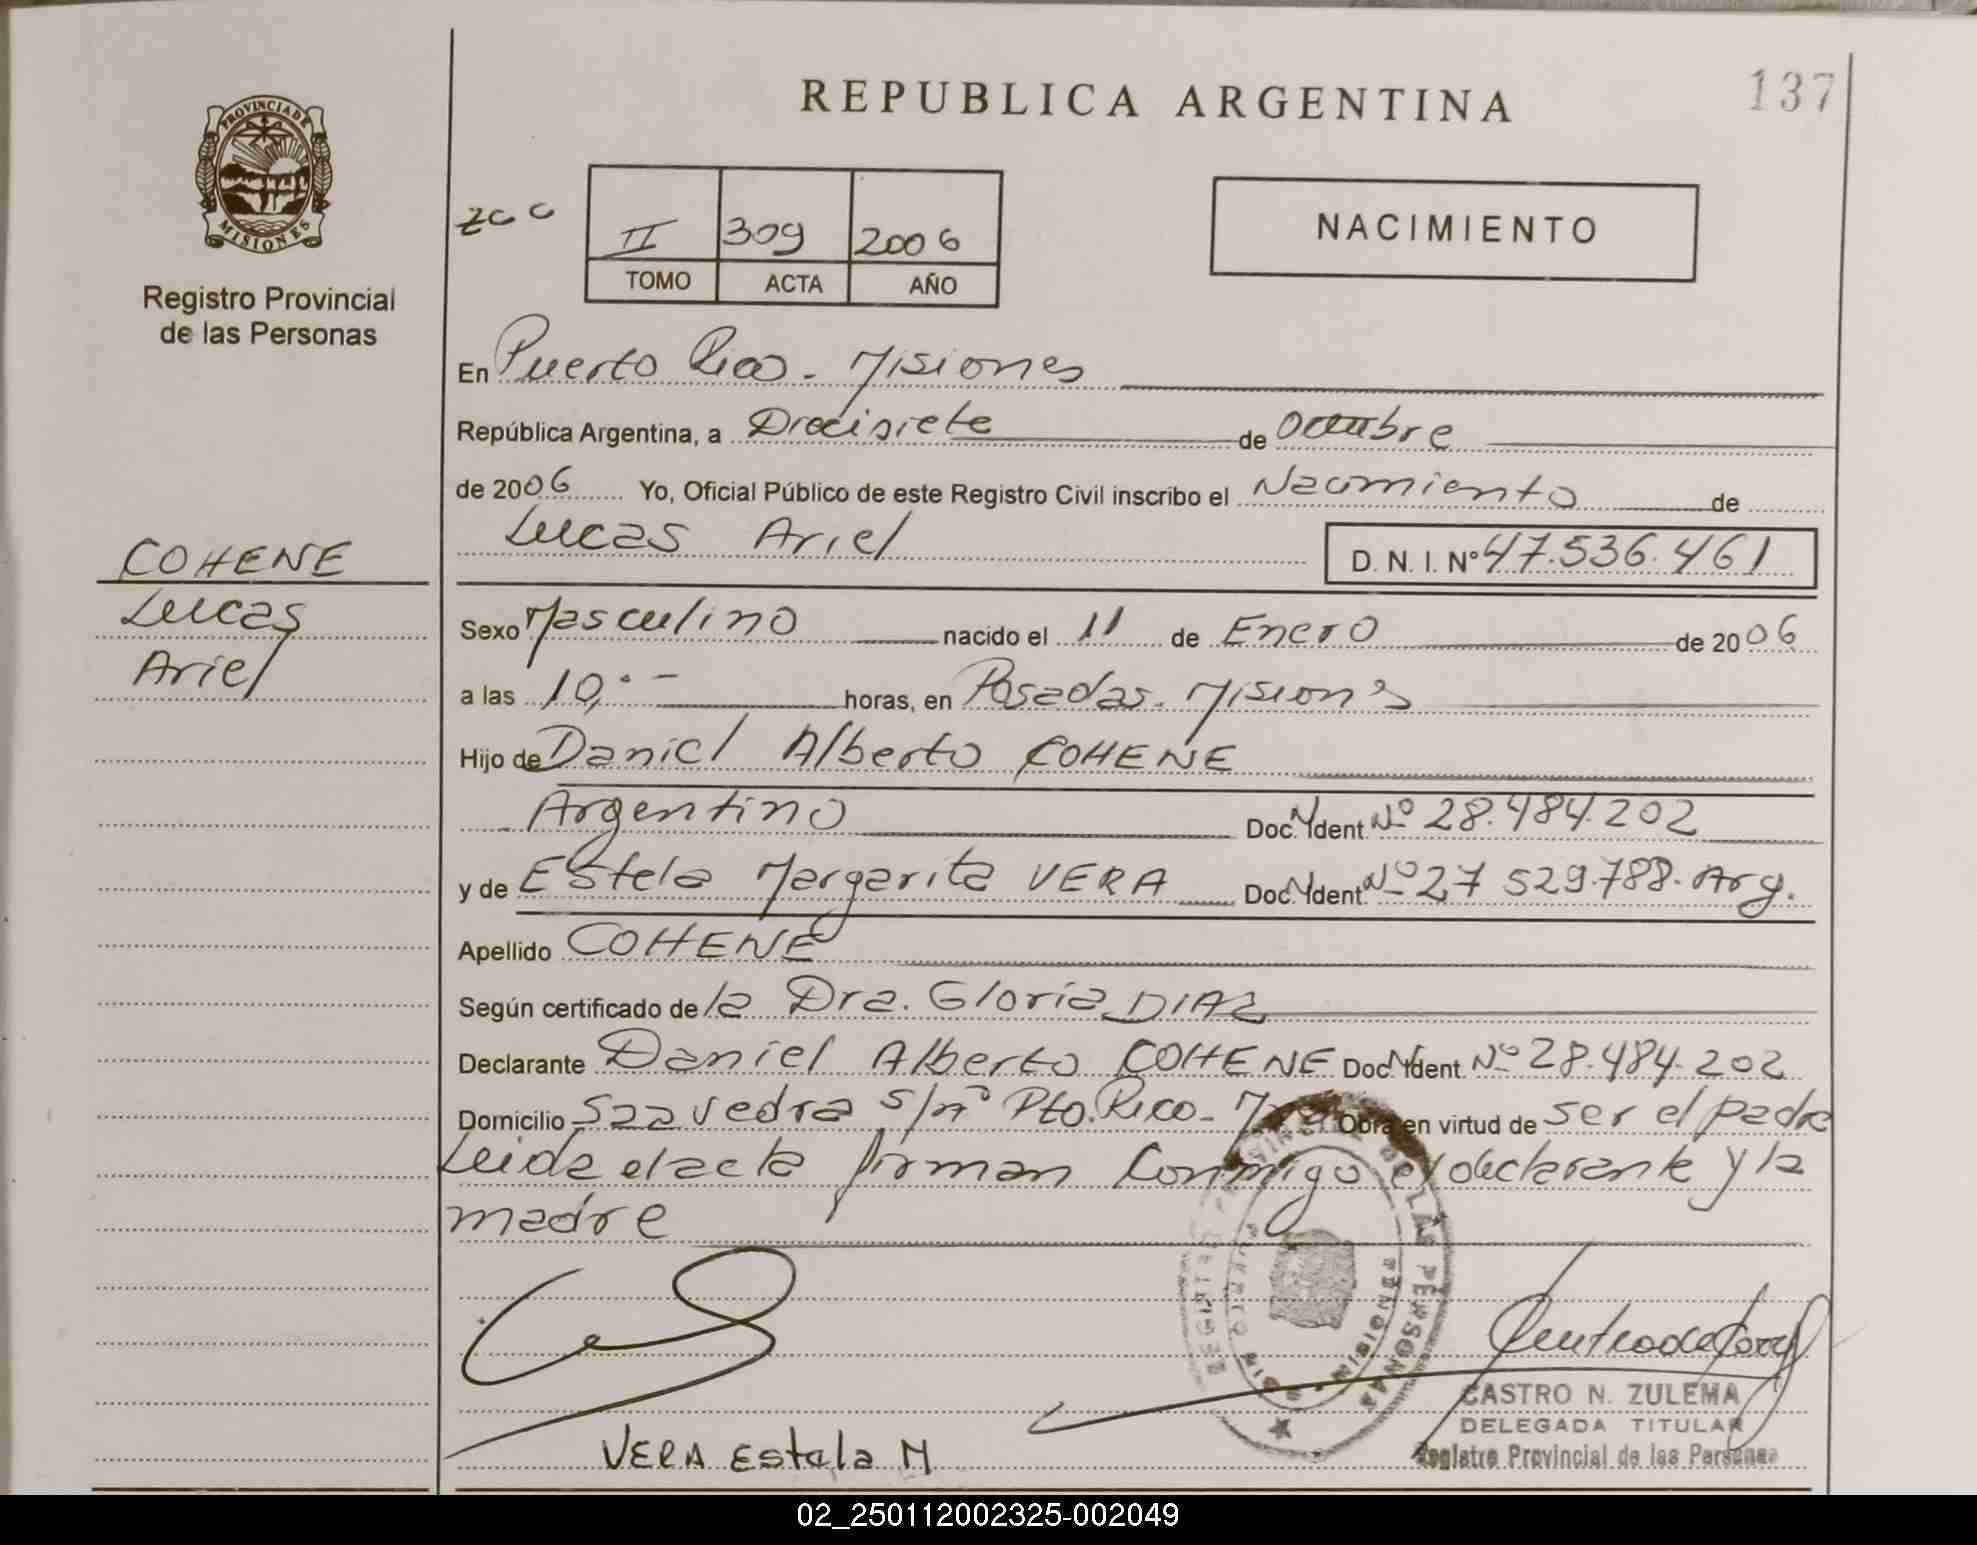 REPUBLICA ARGENTINA
137
PROVINCIA DE
MISIONES
Registro Provincial
de las Personas
II 309 2006
TOMO ACTA AÑO
NACIMIENTO
En Puerto Rico - Misiones
República Argentina, a Diecisiete de Octubre
de 2006 Yo, Oficial Público de este Registro Civil inscribo el Nacimiento de
Lucas Ariel D. N. I. Nº 47.536.461
COHENE
Lucas
Ariel
Sexo Masculino nacido el 11 de Enero de 2006
a las 10,- horas, en Posadas - Misiones
Hijo de Daniel Alberto COHENE
Argentino Doc. Ident. Nº 28.484.202
y de Estela Margarita VERA Doc. Ident. Nº 27 529.788 - Arg.
Apellido COHENE
Según certificado de la Dra. Gloria DIAZ
Declarante Daniel Alberto COHENE Doc. Ident. Nº 28.484.202
Domicilio Saavedra s/nº Pto. Rico - Obra en virtud de ser el padre
Leida el acta firman conmigo el declarante y la
madre
VERA Estela M
CASTRO N. ZULEMA
DELEGADA TITULAR
Registro Provincial de las Personas
02_250112002325-002049